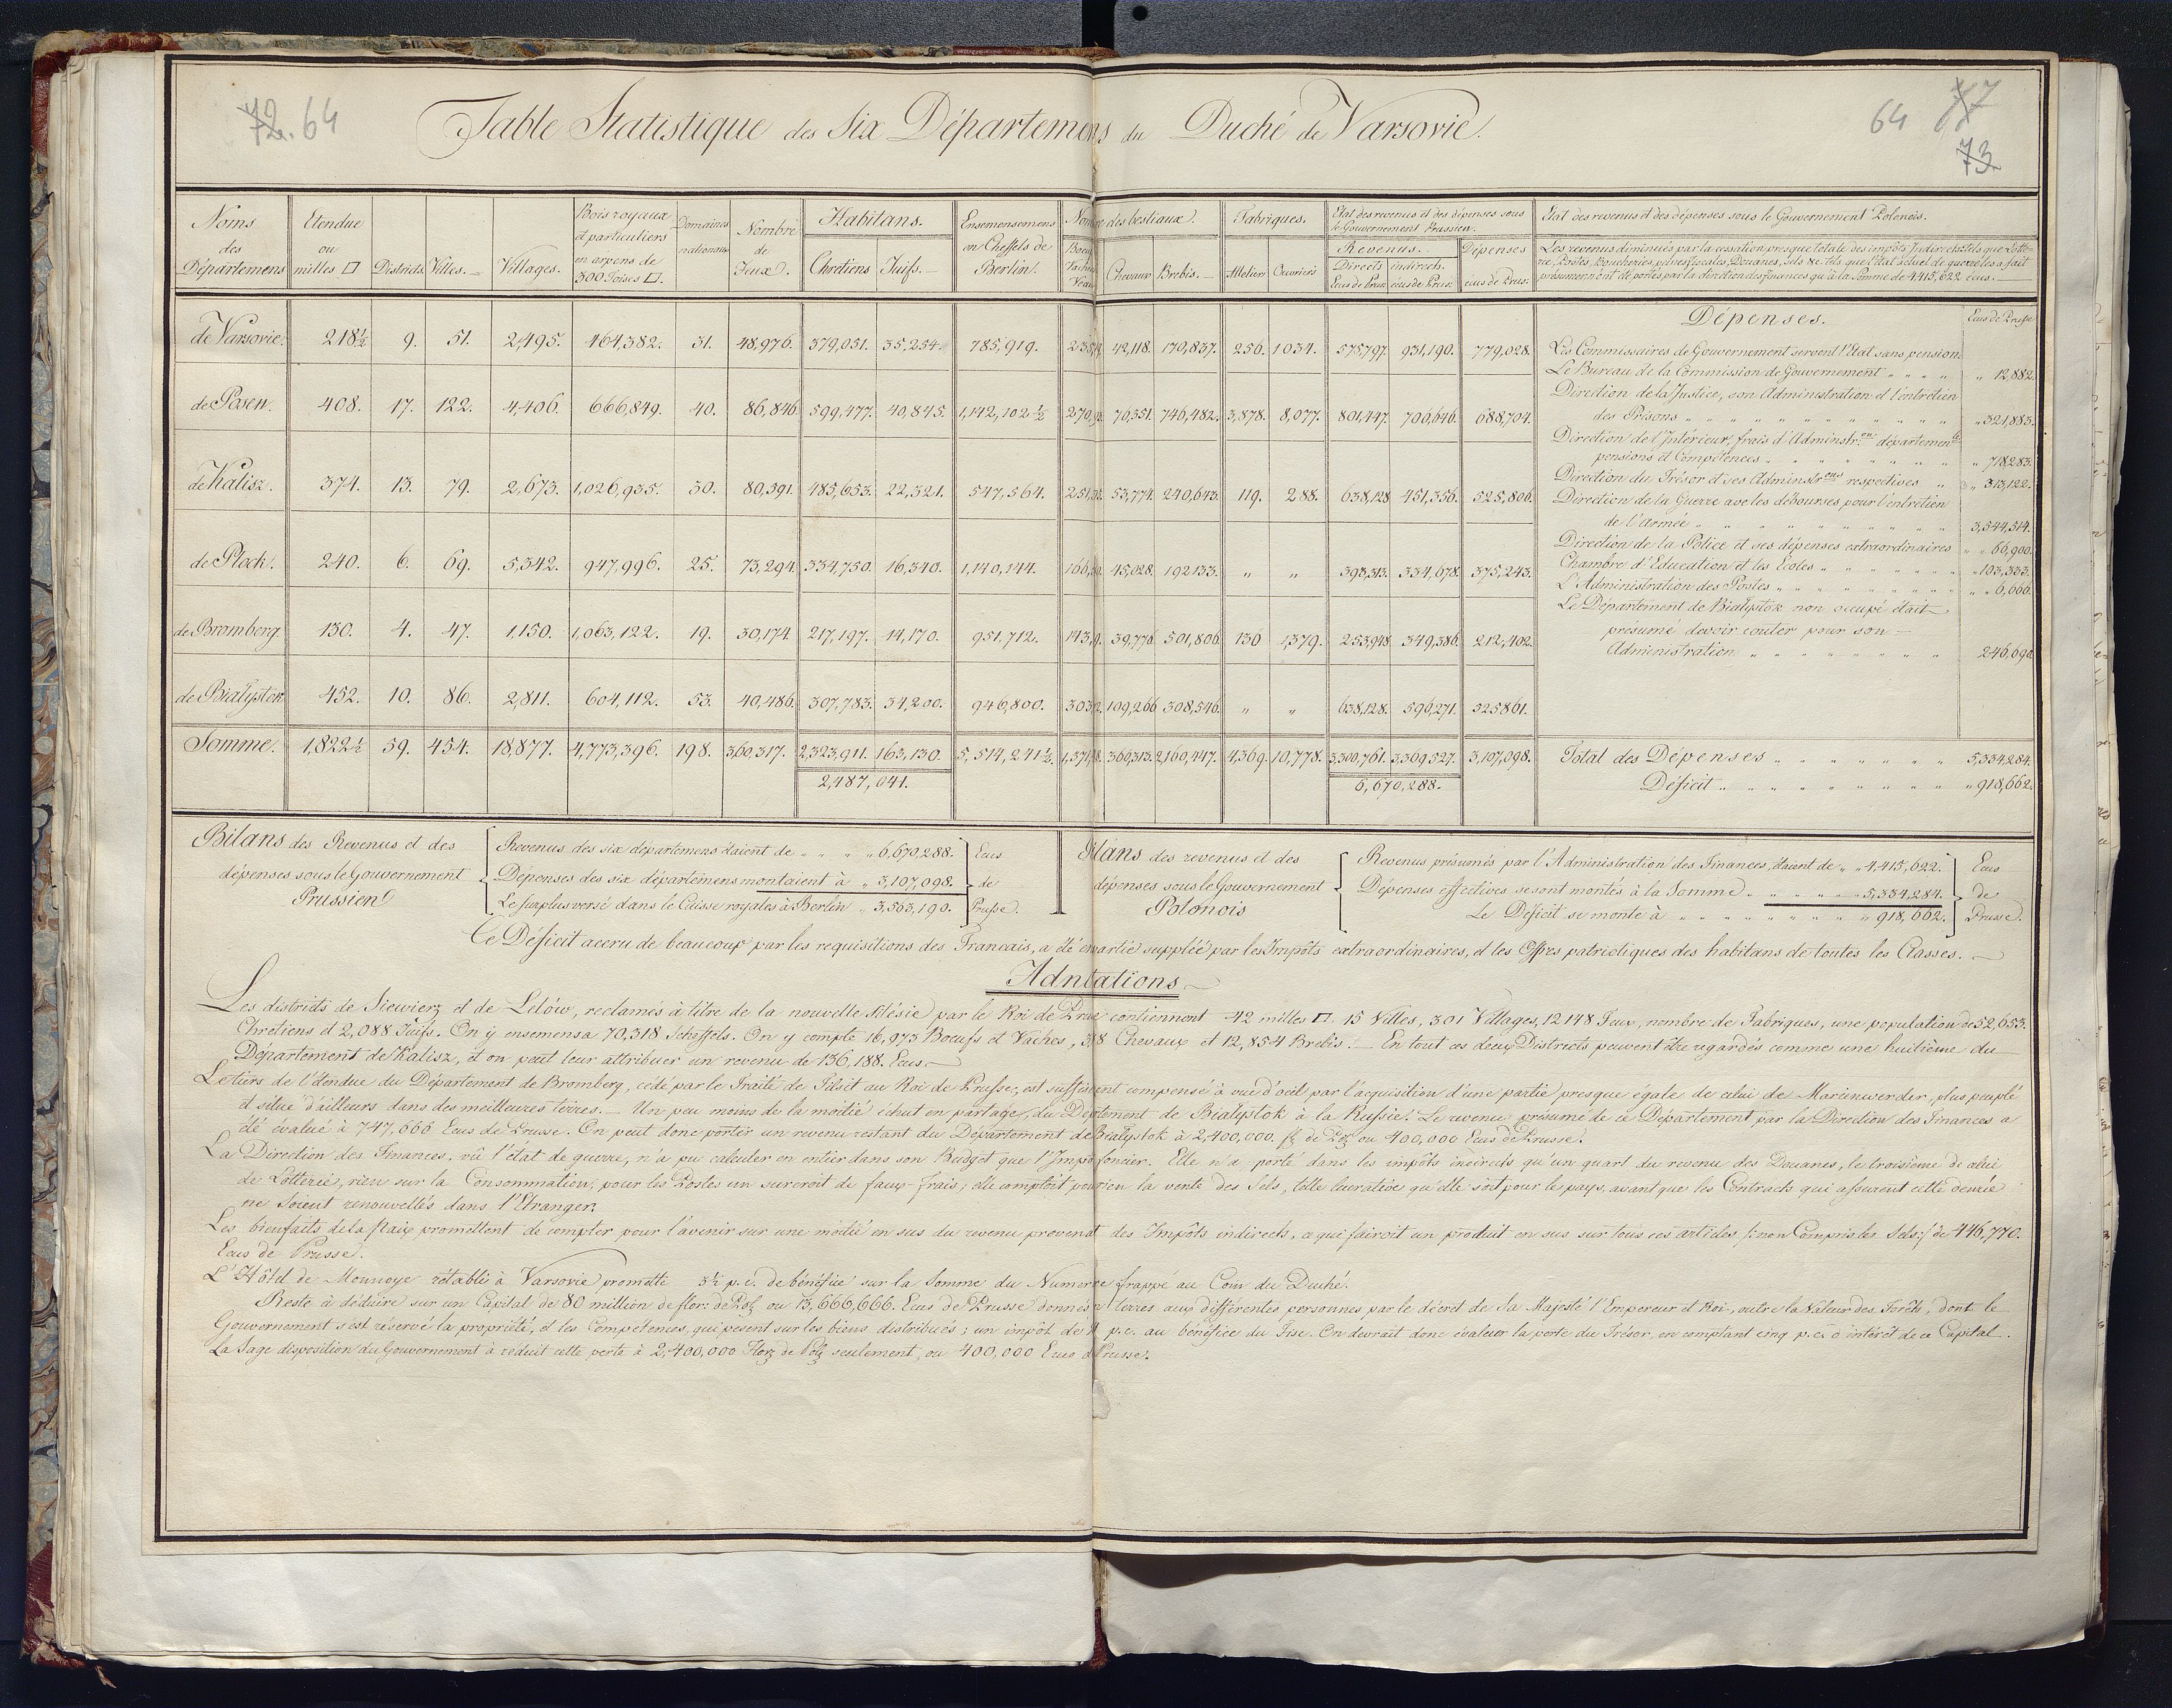 72. 64
64 77
73
Table Statistique des Six Départemens du Duché de Varsovie.
Noms des Départemens | Etendue ou milles □ | Districts. | Villes. | Villages. | Bois royaux et particuliers en arpens de 300 Toises □. | Domaines nationaux | Nombre de Feux. | Habitans. Chretiens | Juifs. | Ensemensemens en Cheffels de Berlin. | Nombre des bestiaux. Boeufs Vaches Veaux | Chevaux | Brebis. | Fabriques. Attelier | Ouvriers | Etat des revenus et des dépenses sous le Gouvernement Prussien. Revenus. Directs Ecus de Prus: | indirects. ecus de Prus: | Dépenses ecus de Prus: | Etat des revenus et des dépenses sous le Gouvernement Polonois.
Les revenus diminués par la cessation presque totale des impôts Indirects tels que Lotte-
rie, Postes, Boucheries, peines fiscales, Douanes, Sels &c. tels que l'état actuel de guerre les a fait
présumer n'ont été portés par la direction des finances qu'à la somme de 4,415,622 écus.
de Varsovie. 218½ 9. 51. 2,495. 464,382. 31. 48,976. 379,051. 35,254. 785,919. 42,118. 170,837. 256. 1034. 575,797. 931,190. 779,028.
de Posen. 408. 17. 122. 4,406. 666,849. 40. 86,846. 599,477. 40,845. 1,142,102½ 70,351. 746,482. 3,878. 8,077. 801,447. 706,646. 688,704.
de Kalisz. 374. 13. 79. 2,673. 1,026,935. 30. 80,391. 485,653. 22,321. 547,564. 53,774. 240,643. 119. 288. 638,128. 451,356. 525,806.
de Plock. 240. 6. 69. 5,342. 947,996. 25. 73,294. 334,750. 16,340. 1,140,144. 45,028. 192133. " " 393,313. 334,678. 375,243.
de Bromberg 130. 4. 47. 1,150. 1,063,122. 19. 30,174. 217,197. 14,170. 951,712. 39,776. 501,806. 136 1,379. 253,948. 349,386. 212,402.
de Bialystok 452. 10. 86. 2,811. 604,112. 53. 40,486. 307,783. 34,200. 946,800. 109,266. 308,546. " " 638,128. 596,271. 525861.
Somme. 1,822½ 59. 454. 18,877. 4,773,396. 198. 360,317. 2,323,911. 163,130. 5,514,241½. 360,313. 2,160,447. 4,369. 10,778. 3,300,761. 3,369,527. 3,107,098.
2,487,041.
6,670,288.
Dépenses. Ecus de Prusse
Les Commissaires de Gouvernement servent l'Etat sans pension
Le Bureau de la Commission de Gouvernement " " " " 12,882.
Direction de la Justice, son Administration et l'entretien
des Prisons " " " 321,883.
Direction de l'Intérieur, frais d'Adminstr:on département:
pensions et Compétences " " " 718,283.
Direction du Trésor et ses Adminstr:ons respectives " " 313,122.
Direction de la Guerre avec les débourses pour l'entretien
de l'armée " " " 3,544,514.
Direction de la Police et ses dépenses extraordinaires " " 66,900.
Chambre d'Education et les Ecoles " " " 103,333.
L'Administration des Postes " " " 6,666.
Le Département de Bialystok non occupé était
présumé devoir couter pour son
Administration " " " 246,698
Total des Dépenses " " " 5,334,284.
Déficit " " " 918,662.
Bilans des Revenus et des
dépenses sous le Gouvernement
Prussien
Revenus des six departemens étaient de " " " 6,670,288.
Depenses des six départemens montaient à " 3,107,098.
Le surplus versé dans le Caisse royales à Berlin " 3,563,190.
Ecus
de
Prusse.
Bilans des revenus et des
dépenses sous le Gouvernement
Polonois
Revenus présumés par l'Administration des Finances, étaient de " " 4,415,622.
Dépenses effectives se sont montés à la Somme " " " 5,334,284.
Le Déficit se monte à " " " 918,662.
Ecus
de
Prusse.
Ce Déficit accru de beaucoup par les requisitions des Francais, a été en partie suppléé par les Impôts extraordinaires, et les Offres patriotiques des habitans de toutes les Classes.
Adntations
Les districts de Siewierz et de Lelów, reclamés à titre de la nouvelle Silésie par le Roi de Prusse contiennent 42 milles □ 15 Villes, 301 Villages, 12148 Feux, nombre de Fabriques, une population de 52,653.
Chretiens et 2,088 Juifs. On y ensemensa 70,318 Scheffels. On y compte 16,973 Boeufs et Vaches, Chevaux et 12,854 Brebis. En tout ces deux Districts peuvent être regardés comme une huitième du
Département de Kalisz, et on peut leur attribuer un revenu de 136,188. Ecus.
Le tiers de l'étendue du Département de Bromberg, cédé par le Traité de Tilsit au Roi de Prusse, est suffisament compensé à vue d'oeil par l'acquisition d'une partie presque égale de celui de Marienwerder, plus peuplé
et situé d'ailleurs dans des meilleures terres. Un peu moins de la moitié échut en partage, du Département de Bialystok à la Russie. Le revenu présumé de ce Département par la Direction des Finances a
été évalué à 747,666 Ecus de Prusse. On peut donc porter un revenu restant du Département de Bialystok à 2,400,000. fl: de Pol: ou 400,000 Ecus de Prusse.
La Direction des Finances, vû l'état de guerre, n'a pu calculer en entier dans son Budget que l'Impôt foncier. Elle n'a porté dans les impôts indirects qu'un quart du revenu des Douanes, le troisième de celui
de Lotterie, rien sur la Consommation, pour les Postes un surcroit de faux-frais; elle comptoit pour rien la vente des Sels, telle lucrative qu'elle soit pour le pays, avant que les Contracts qui assurent cette denrée
ne soient renouvellés dans l'Etranger.
Les bienfaits de la paix promettent de compter pour l'avenir sur une moitié en sus du revenu provenat des Impôts indirects, ce qui fairoit un produit en sus sur tous ces articles /: non Compris les Sels :/ de 446,770.
Ecus de Prusse.
L'Hôtel de Monnoye rétabli à Varsovie promette 3½ p. c. de bénéfice sur la Somme du Numeraire frappé au Coin du Duché.
Reste à déduire sur un Capital de 80 million de flor: de Pol: ou 13,666,666. Ecus de Prusse donnés en terres aux différentes personnes par le décret de Sa Majesté l'Empereur et Roi, outre la Valeur des Forêts, dont le
Gouvernement s'est réservé la propriété, et les Compétences, qui pesent sur les biens distribués; un impôt de p. c. au bénéfice du Fisc. On devrait donc évaluer la perte du Trésor, en comptant cinq p. c. d'intérêt de ce Capital.
La Sage disposition du Gouvernement à réduit cette perte à 2,400,000 Flor: de Pol: seulement, ou 400,000 Ecus de Prusse.